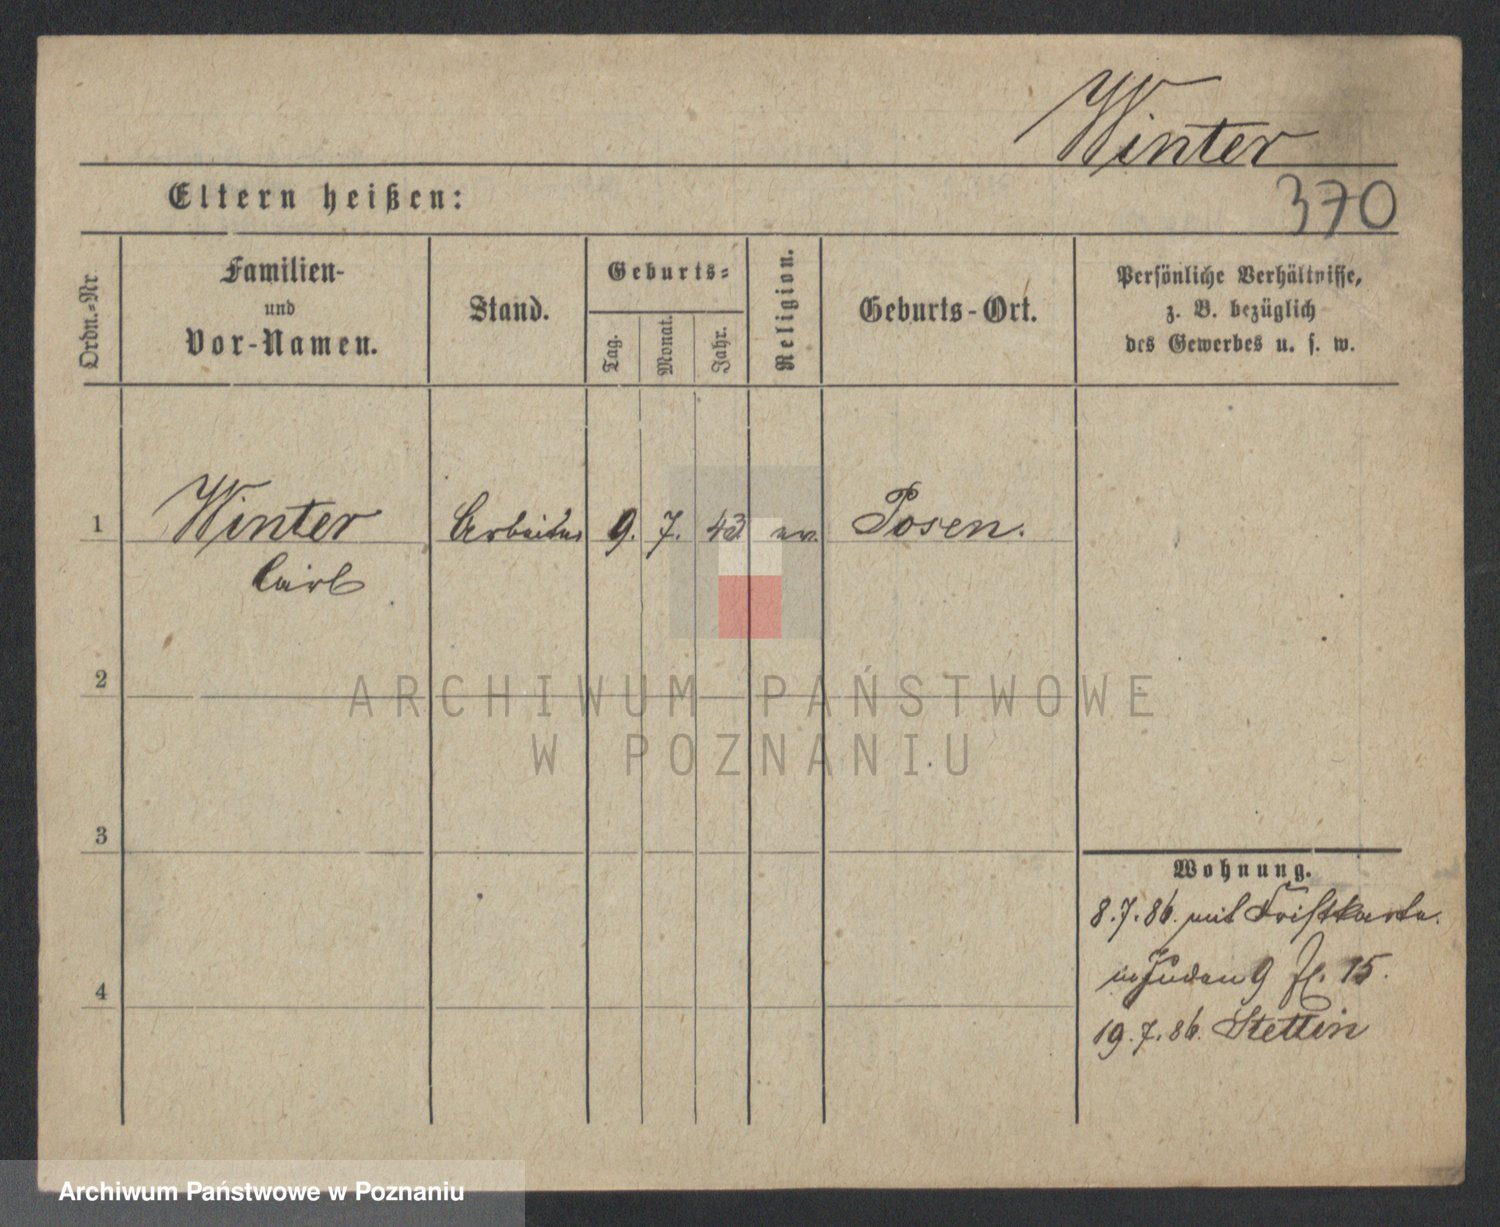 Winter
370
Eltern heißen:
Ordn.-Nr
Familien-
und
Vor-Namen.
Stand.
Geburts-
Tag.
Monat.
Jahr.
Religion.
Geburts-Ort.
Persönliche Verhältnisse,
z. B. bezüglich
des Gewerbes u. s. w.
1
Winter
Carl
Arbeiter
9. 7. 43. ev.
Posen.
2
ARCHIWUM PAŃSTWOWE
W POZNANIU
3
Wohnung.
8.7.86. mit
Juden 15.
4
19.7.86. Stettin
Archiwum Państwowe w Poznaniu